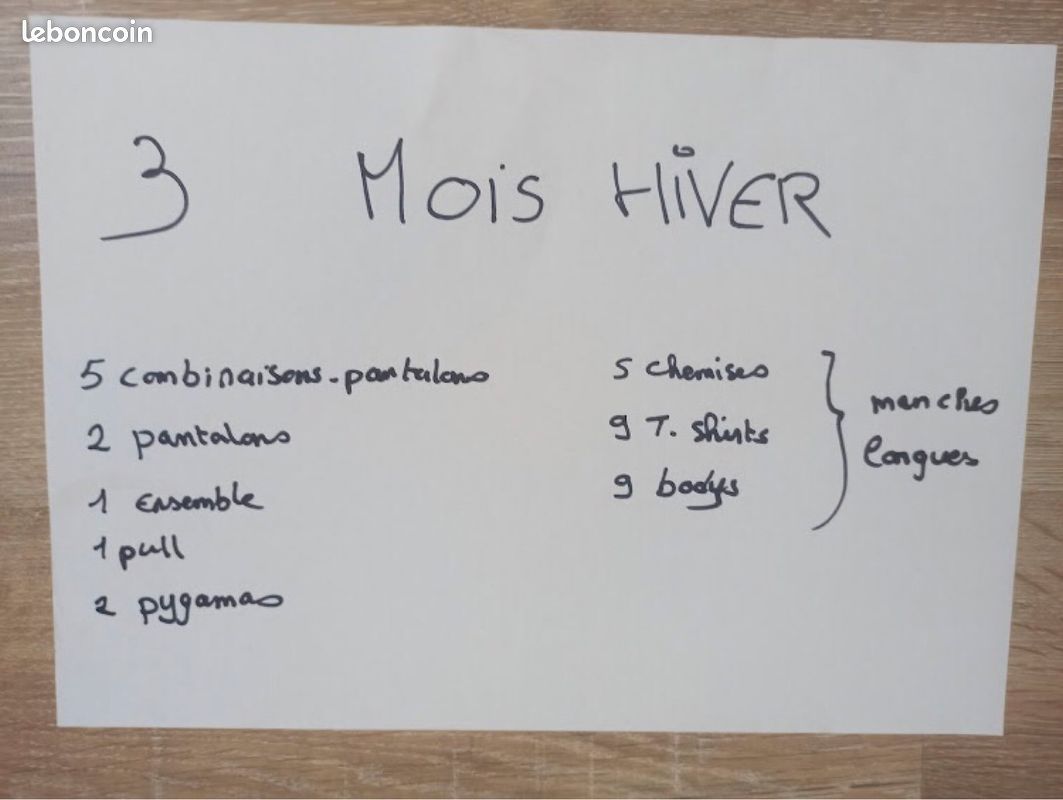 leboncoin
3 Mois HiVER
5 combinaisons-pantalons
2 pantalons
1 Ensemble
1 pull
2 pygamas
5 chemises
9 T. shirts
9 bodys
manches
longues